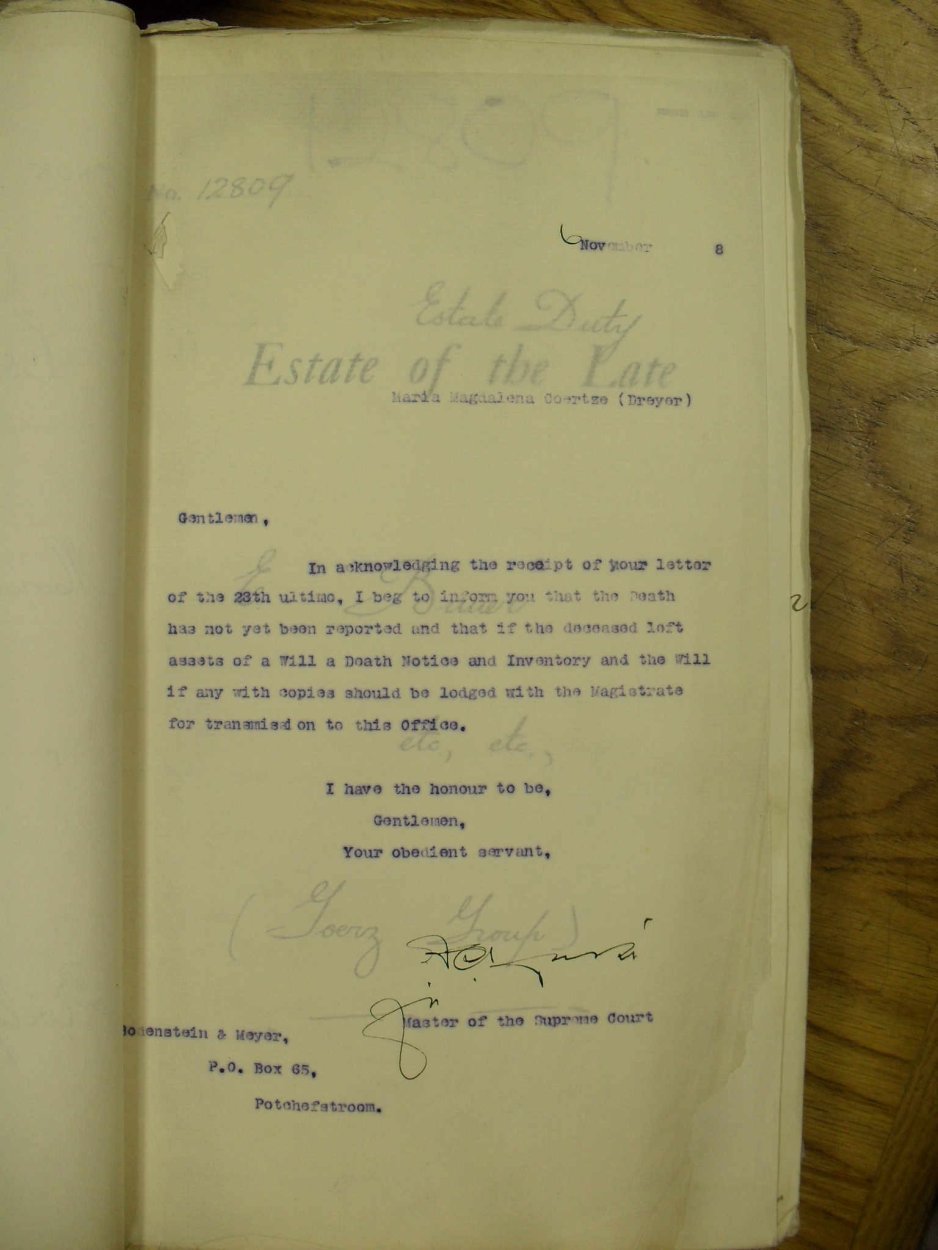 No. 12809
6 November 8
Estate Duty
Estate of the Late
Maria Magdalena Coertze (Dreyer)
Gentlemen,
In acknowledging the receipt of your letter
of the 28th ultimo, I beg to inform you that the Death
has not yet been reported and that if the deceased left
assets of a Will a Death Notice and Inventory and the Will
if any with copies should be lodged with the Magistrate
for transmission to this Office.
etc, etc.,
I have the honour to be,
Gentlemen,
Your obedient servant,
(Goerz Group)
Master of the Supreme Court
Bodenstein & Meyer,
P.O. Box 65,
Potchefstroom.